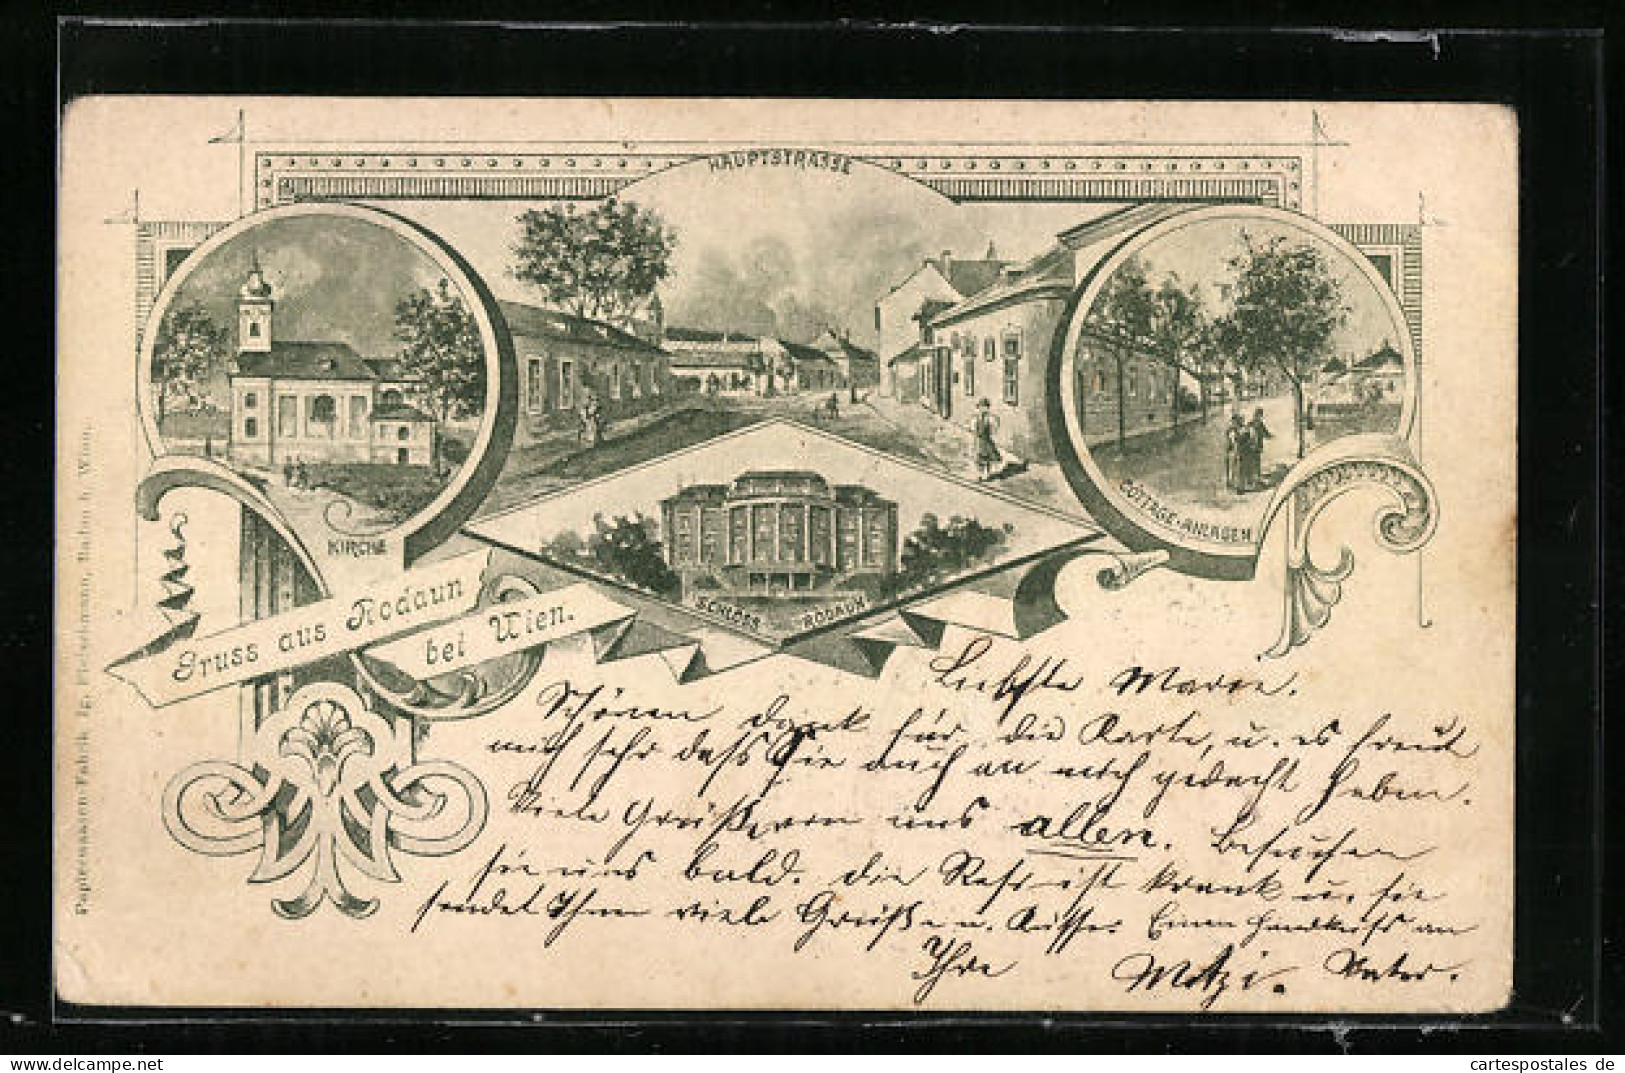 HAUPTSTRASSE
KIRCHE
COTTAGE-ANLAGEN.
SCHLOSS RODAUN
Gruss aus Rodaun
bei Wien.
Liebste Marie.
Schönen Dank für die Karte, u. es freut
mich sehr dass Sie auch an mich gedacht haben.
Viele Grüße von uns allen. Besuchen
sie uns bald. die Resi ist krank u. sie
sendet Ihnen viele Grüße u. Küsse. Einen Handkuß an
Ihre Mitzi. Vater.
Papierwaaren-Fabrik Ig. Fleischmann, Wien.
cartespostales de